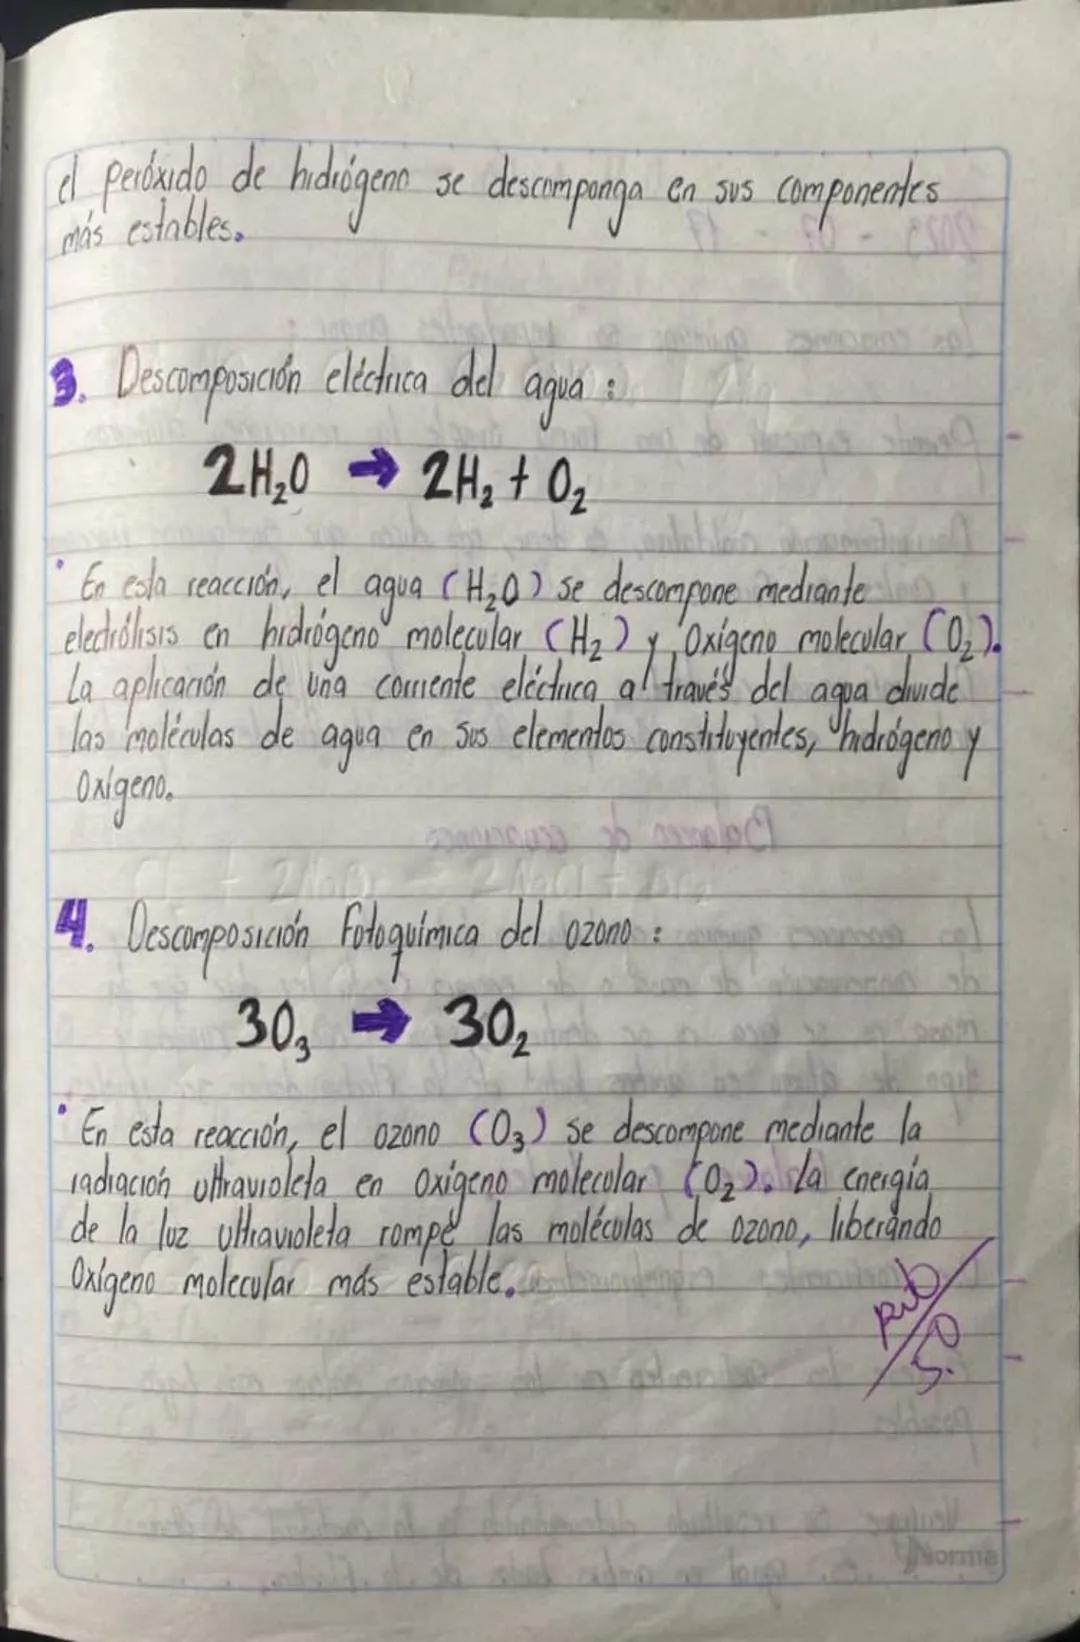 el peróxido de hidrógeno se descomponga en sus componentes
más estables.
3. Descomposición eléctrica del agua :
2H₂O → 2H₂ + O₂
• En esta reacción, el agua (H₂O) se descompone mediante
electrólisis en hidrógeno molecular (H₂) y Oxígeno molecular (O₂).
La aplicación de una corriente eléctrica al través del agua divide
las moléculas de agua en sus elementos constituyentes, hidrógeno y
Oxígeno.
4. Descomposición Fotoquímica del ozono :
3O₃ → 3O₂
• En esta reacción, el ozono (O₃) se descompone mediante la
radiación ultravioleta en Oxígeno molecular (O₂). La energía
de la luz ultravioleta rompe las moléculas de ozono, liberando
Oxígeno molecular más estable.
5.0
Norma